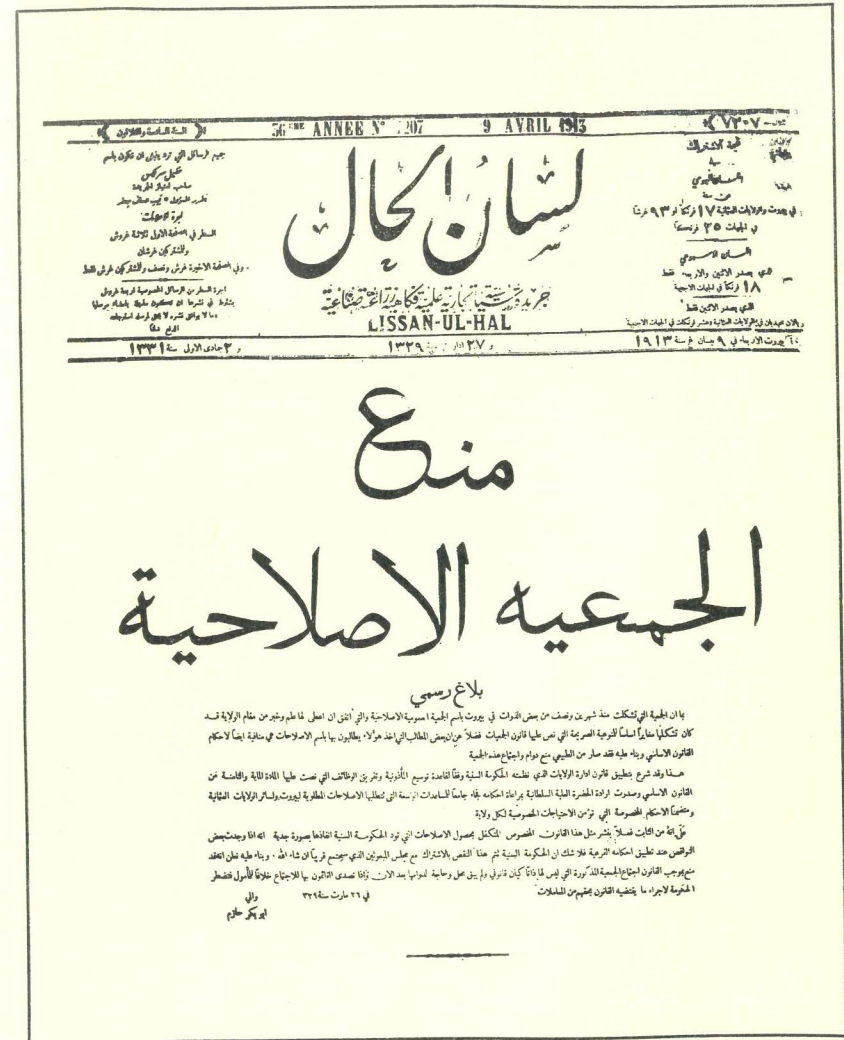 السنة السادسة والثلاثون
56ME ANNEE N° 7207 9 AVRIL 1913
٧٣٠٧
جميع الرسائل التي ترد ينبغي ان تكون باسم
خليل سركيس
صاحب امتياز الجريدة
اجرة الاعلانات
السطر في الصفحة الاولى ثلاثة غروش
وللمشتركين غرشان
وفي الصفحة الاخيرة غرش ونصف وللمشتركين غرش فقط
اجرة السطر من الرسائل الخصوصية اربعة غروش
يشترط في نشرها ان تكون مذيلة بامضاء مرسلها
وما لا يوافق نشره لا يحق لمرسله استرجاعه
الدفع سلفا
لسان الحال
جريدة سياسية تجارية علمية فكاهية زراعية صناعية
LISSAN-UL-HAL
قيمة الاشتراك
في
اللسان اليومي
عن سنة
في بيروت والولايات العثمانية ١٧ فرنكاً او ٩٣ غرشاً
في الجهات ٢٥ فرنكاً
اللسان الاسبوعي
الذي يصدر الاثنين والاربعاء فقط
١٨ فرنكاً في الجهات الاجنبية
الذي يصدر الاثنين فقط
ريالان مجيديان في الولايات العثمانية وعشر فرنكات في الجهات الاجنبية
بيروت الاربعاء في ٩ نيسان غ سنة ١٩١٣
و ٢٧ اذار سنة ١٣٢٩
و ٢ جمادى الاولى سنة ١٣٣١
منع
الجمعيه الاصلاحية
بلاغ رسمي
بما ان الجمعية التي تشكلت منذ شهرين ونصف من بعض الذوات في بيروت باسم الجمعية العمومية الاصلاحية والتي اتفق ان اعطى لها علم وخبر من مقام الولاية قد
كان تشكلها مغايراً اساساً للتوصية الصريحة التي نص عليها قانون الجمعيات فضلاً عن ان بعض المطالب التي اخذ هؤلاء يطالبون بها باسم الاصلاحات هي منافية ايضاً لاحكام
القانون الاساسي وبناء عليه فقد صار من الطبيعي منع دوام واجتماع هذه الجمعية
هذا وقد شرع بتطبيق قانون ادارة الولايات الذي نظمته الحكومة السنية وفقاً لقاعدة توسيع المأذونية وتفريق الوظائف التي نصت عليها المادة المائة والثامنة من
القانون الاساسي وصدرت ارادة الحضرة العلية السلطانية بمراعاة احكامه فجاء جامعاً للمساعدات الواسعة التي تتطلبها الاصلاحات المطلوبة لبيروت ولسائر الولايات العثمانية
ومتضمناً الاحكام المخصوصة التي تؤمن الاحتياجات الخصوصية لكل ولاية
على انه من الثابت فضلاً بنشر مثل هذا القانون المخصوص المتكفل بحصول الاصلاحات التي تود الحكومة السنية انفاذها بصورة جدية انه اذا وجدت بعض
النواقص عند تطبيق احكامه الفرعية فلا شك ان الحكومة السنية تتم هذا النقص بالاشتراك مع مجلس المبعوثين الذي سيجتمع قريباً ان شاء الله . وبناء عليه نعلن انه قد
منع بموجب القانون اجتماع الجمعية المذكورة التي ليس لها ذاتاً كيان قانوني ولم يبق محل وحاجة لدوامها بعد الان واذا تصدى القائمون بها للاجتماع خلافاً للمأمول فتضطر
الحكومة لاجراء ما يقتضيه القانون بحقهم من المعاملات
في ٢٦ مارت سنة ٣٢٩
والي
ابو بكر حازم